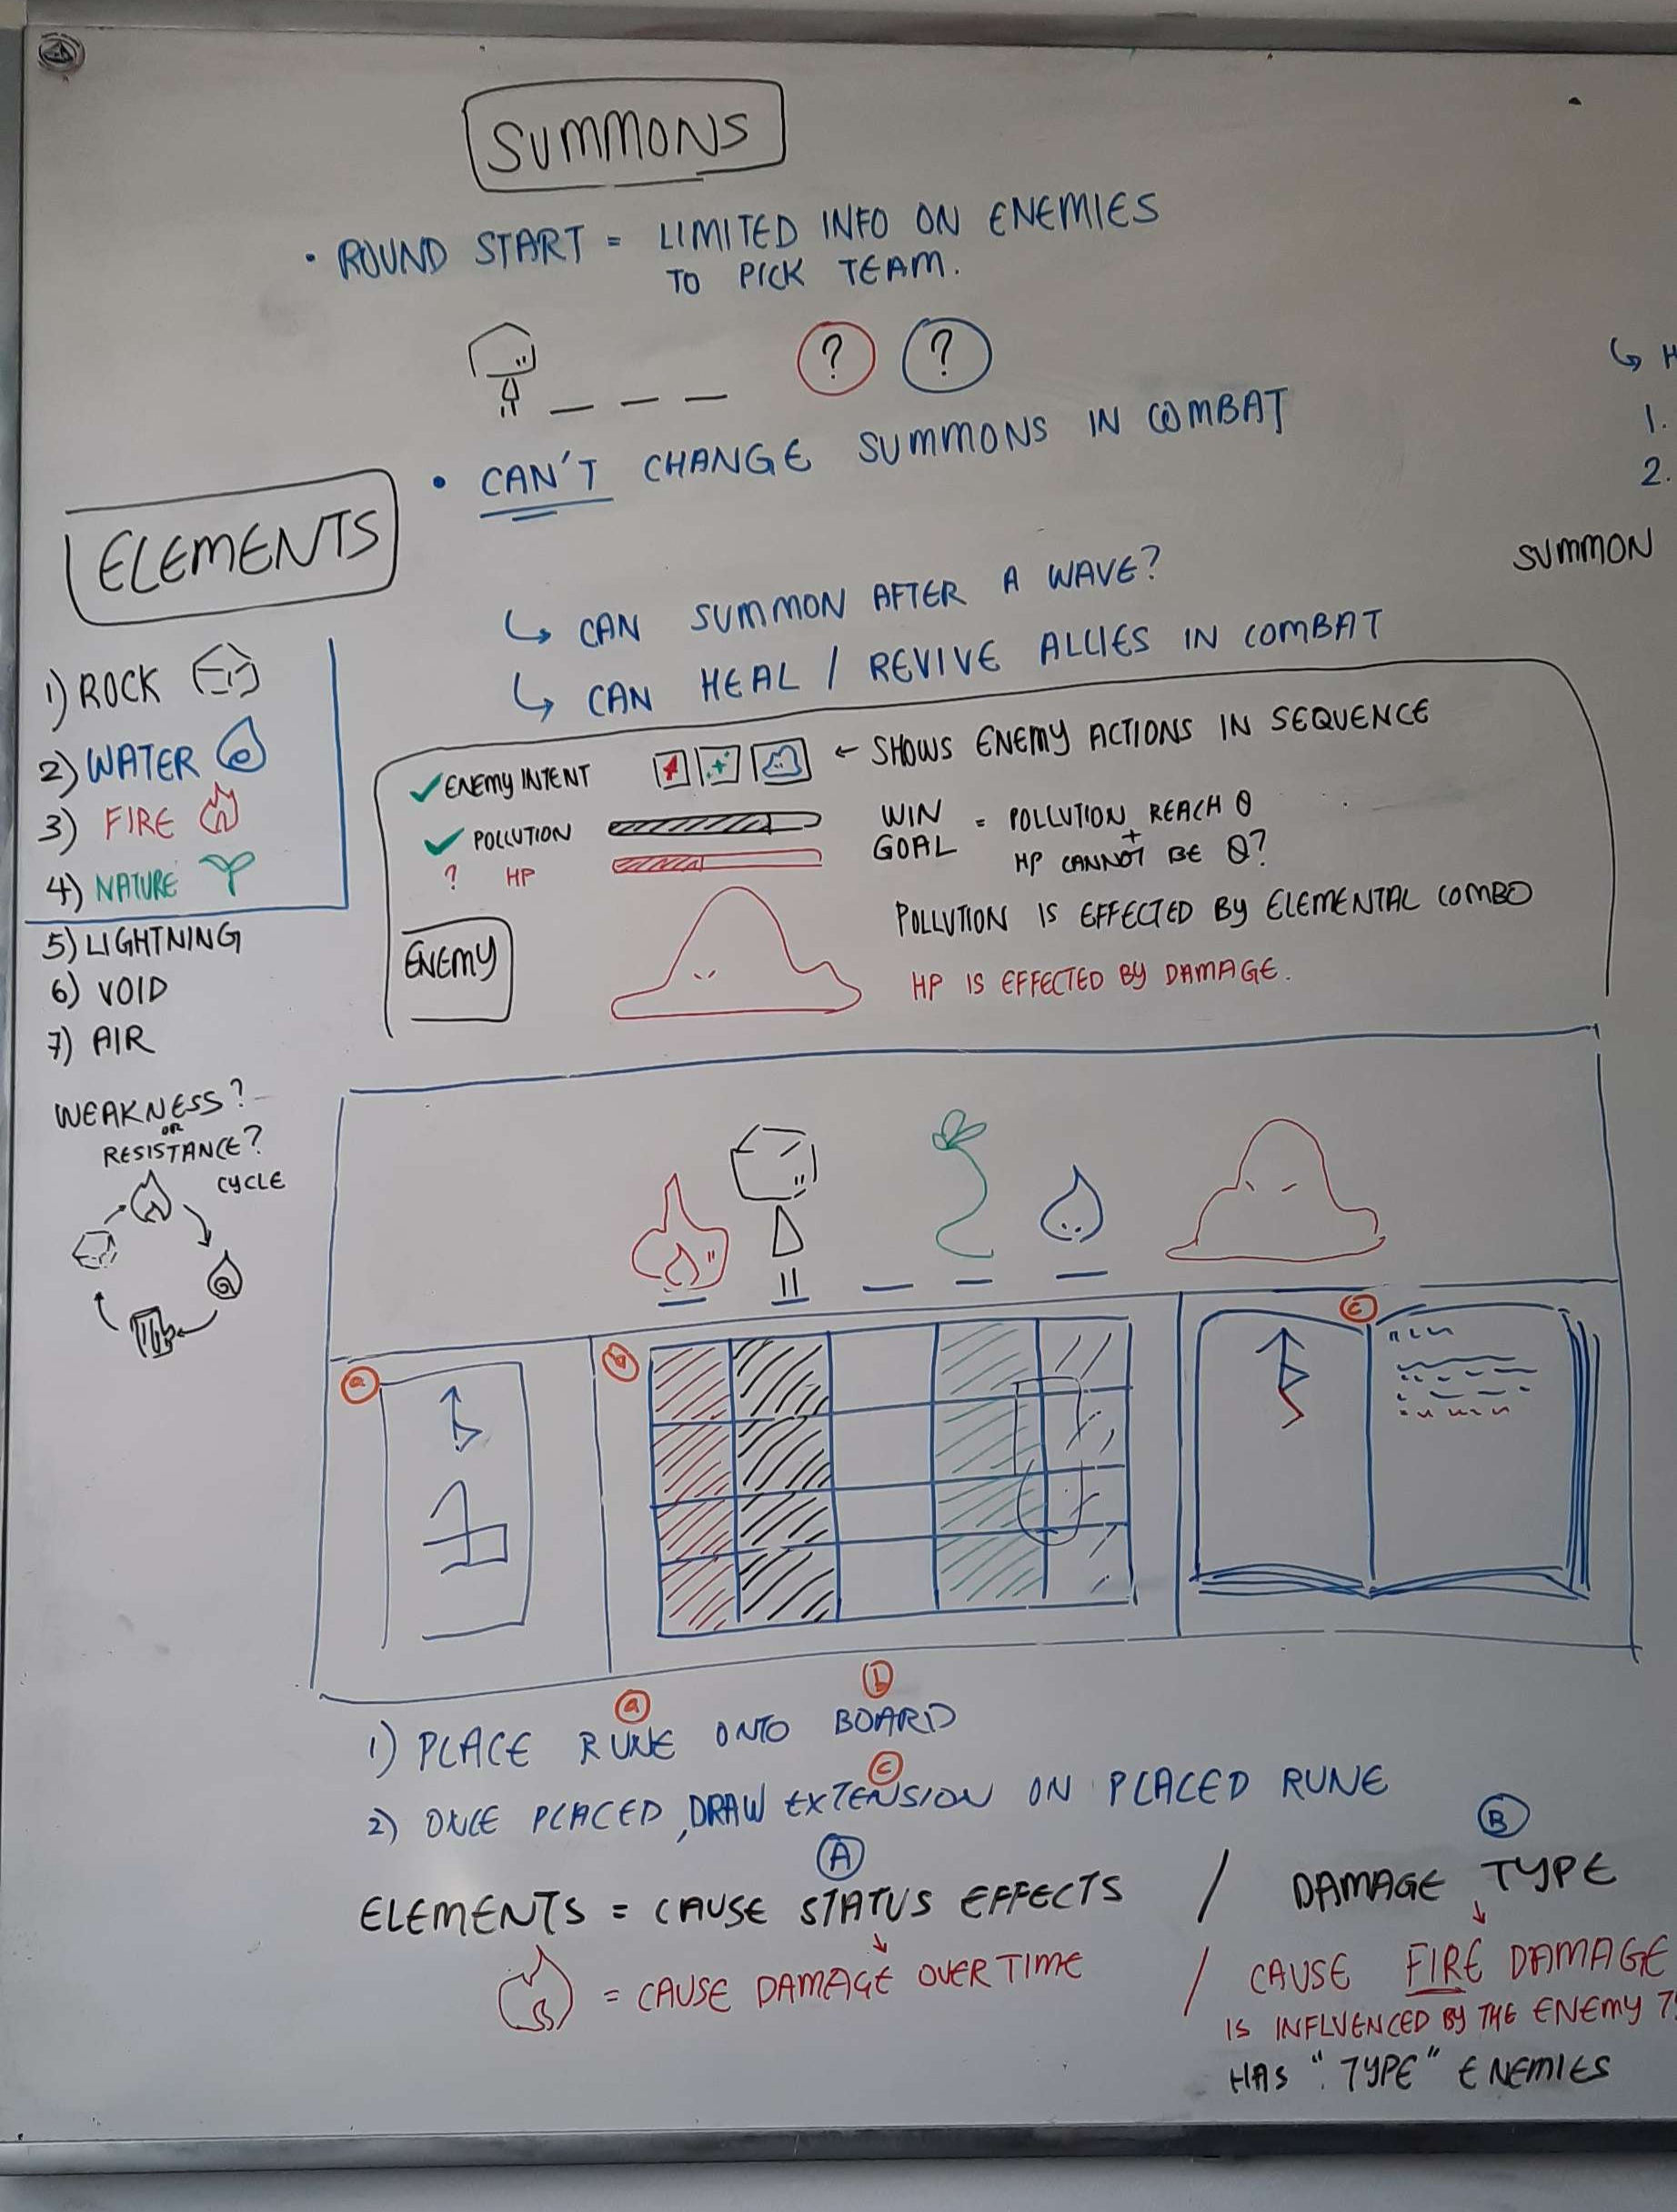 SUMMONS
• ROUND START = LIMITED INFO ON ENEMIES
TO PICK TEAM.
? ?
• CAN'T CHANGE SUMMONS IN COMBAT
↳ CAN SUMMON AFTER A WAVE?
↳ CAN HEAL / REVIVE ALLIES IN COMBAT
↳ H
1.
2.
SUMMON
ELEMENTS
1) ROCK
2) WATER
3) FIRE
4) NATURE
5) LIGHTNING
6) VOID
7) AIR
WEAKNESS?
OR
RESISTANCE?
CYCLE
✓ ENEMY INTENT ← SHOWS ENEMY ACTIONS IN SEQUENCE
✓ POLLUTION
? HP
WIN GOAL = POLLUTION REACH 0
+
HP CANNOT BE 0?
POLLUTION IS EFFECTED BY ELEMENTAL COMBO
HP IS EFFECTED BY DAMAGE.
ENEMY
a
b
c
a b
1) PLACE RUNE ONTO BOARD
c
2) ONCE PLACED, DRAW EXTENSION ON PLACED RUNE
A B
ELEMENTS = CAUSE STATUS EFFECTS / DAMAGE TYPE
= CAUSE DAMAGE OVER TIME / CAUSE FIRE DAMAGE
IS INFLUENCED BY THE ENEMY
HAS "TYPE" ENEMIES